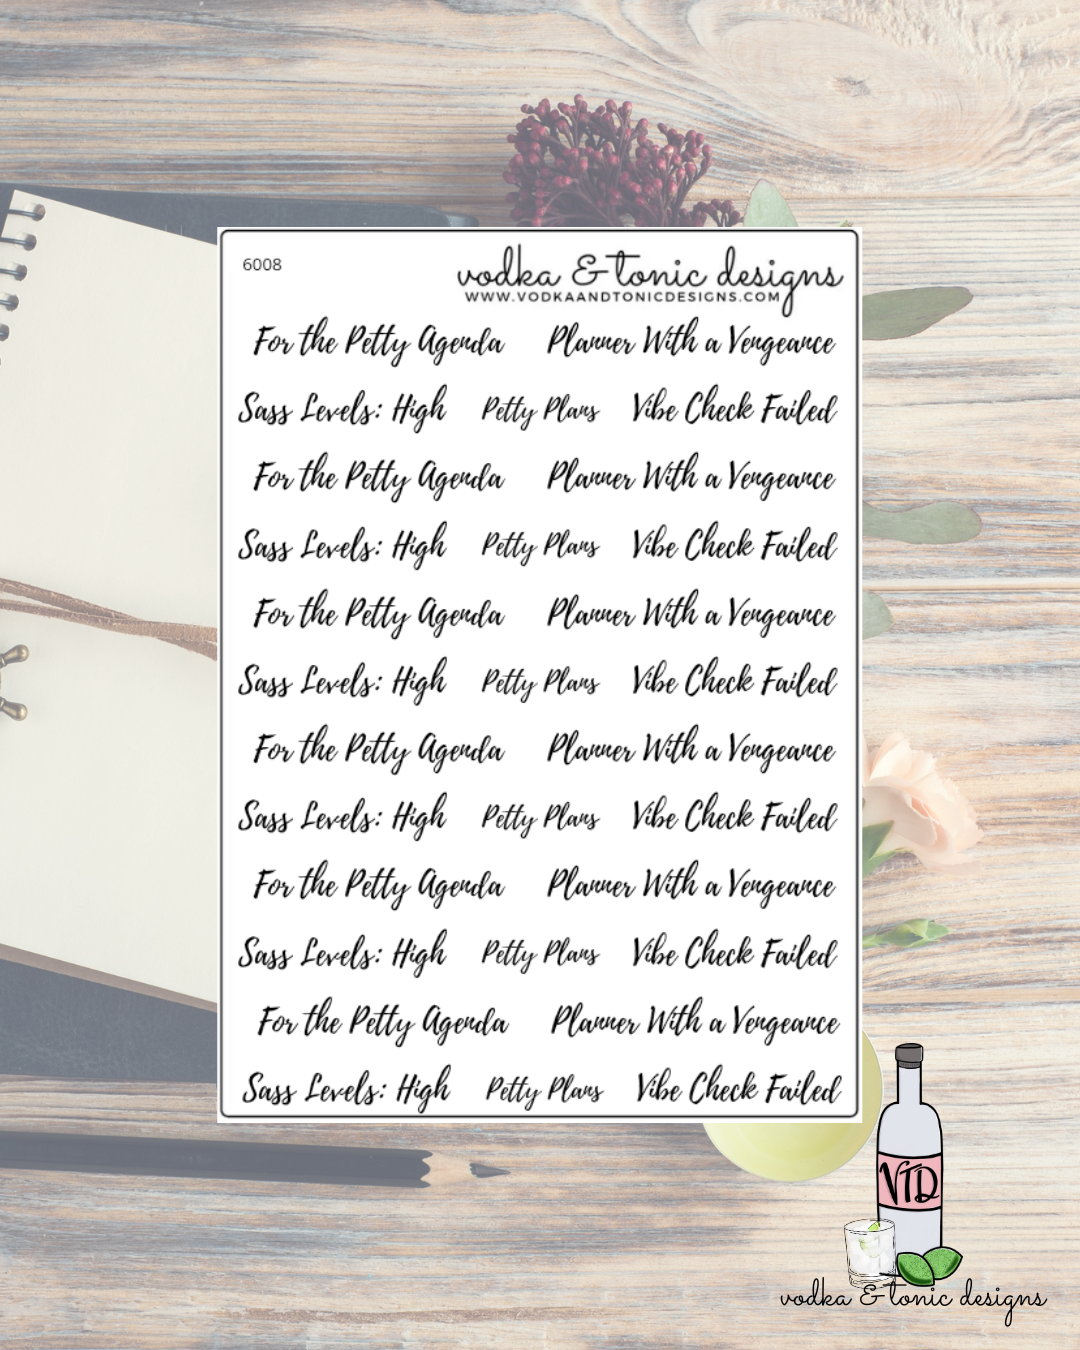 6008
vodka & tonic designs
WWW.VODKAANDTONICDESIGNS.COM
For the Petty Agenda Planner With a Vengeance
Sass Levels: High Petty Plans Vibe Check Failed
For the Petty Agenda Planner With a Vengeance
Sass Levels: High Petty Plans Vibe Check Failed
For the Petty Agenda Planner With a Vengeance
Sass Levels: High Petty Plans Vibe Check Failed
For the Petty Agenda Planner With a Vengeance
Sass Levels: High Petty Plans Vibe Check Failed
For the Petty Agenda Planner With a Vengeance
Sass Levels: High Petty Plans Vibe Check Failed
For the Petty Agenda Planner With a Vengeance
Sass Levels: High Petty Plans Vibe Check Failed
VTD
vodka & tonic designs